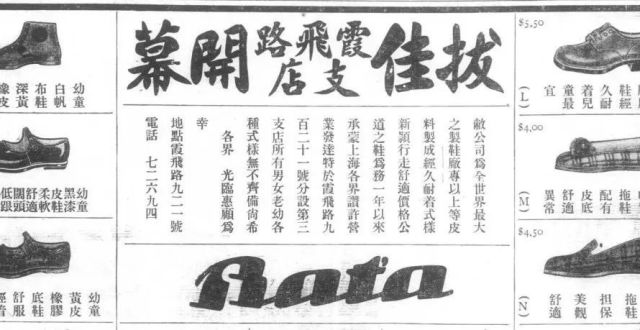 拔佳
霞飛路
支店
開幕
敝公司爲全世界最大
之製鞋廠專以上等皮
料製成經久耐着式樣
新穎行走舒適價格公
道之鞋爲務一年以來
承蒙上海各界讚許營
業發達特於霞飛路九
百二十一號分設第三
支店所有男女老幼各
種式樣無不齊備尙希
各界 光臨惠顧爲
幸
地點霞飛路九二一號
電話 七二六九四
Bata
$5.50
(L)
鞋經
久耐
着兒
童最
宜
$4.00
(M)
拖鞋
配有
皮底
舒適
異常
$4.50
(N)
拖鞋
担保
美觀
舒適
幼童
白帆
布鞋
深黃
橡皮
幼童
黑漆
皮鞋
柔軟
舒適
闊頭
低跟
幼童
黃皮
橡膠
底鞋
舒服